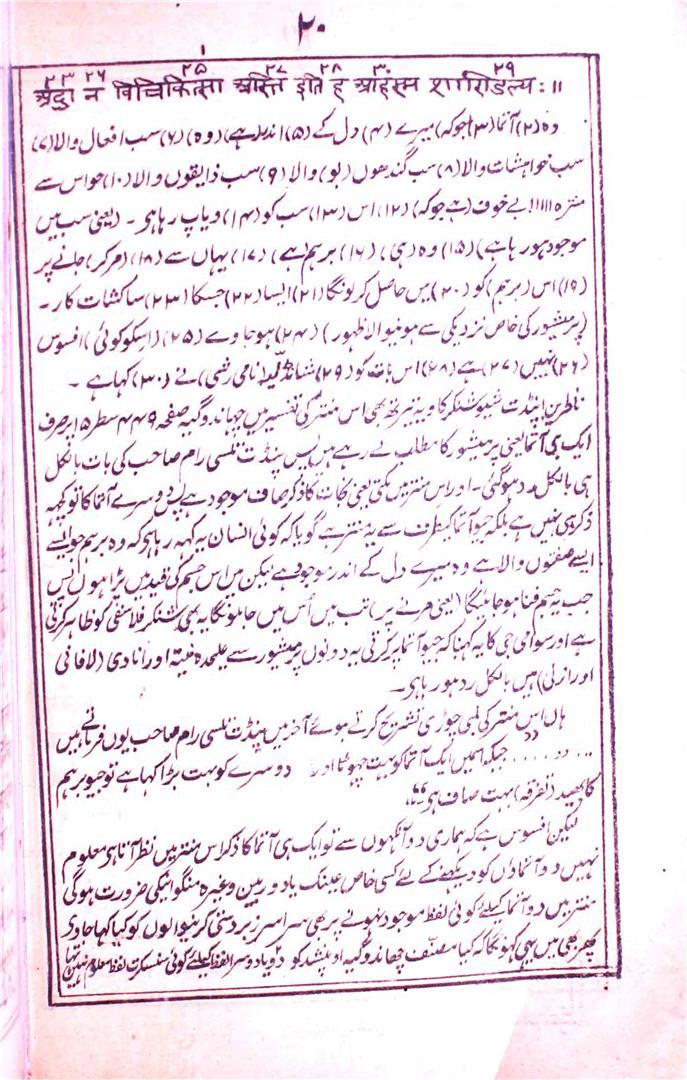 ۲۰
۲۳ ۲۶ ۲۵ ۲۷ ۲۸ ۳۰ ۲۹
श्रद्धा न विचिकित्सा अस्ति इति ह आहस्म शाण्डिल्यः॥
وہ (۲) آتما (۳) جوکہ) میرے (۴) دل کے (۵) اندر ہے) (وہ) (۶) سب افعال والا (۷)
سب خواہشات والا (۸) سب گندھوں (بو) والا (۹) سب ذایقوں والا (۱۰) حواس سے
منزہ (۱۱) بے خوف (ہے جوکہ) (۱۲) اس (۱۳) سب کو (۱۴) ویاپ رہا ہو ۔ (یعنی سب میں
موجود ہو رہا ہے) (۱۵) وہ (ہی) (۱۶) برہم (ہے) (۱۷) یہاں سے (۱۸) (مر کر) جانے پر
(۱۹) اس (برہم) کو (۲۰) میں حاصل کر لونگا (۲۱) ایسا (۲۲) جسکا (۲۳) ساکشات کار ۔
(پرمیشور کی خاص نزدیکی سے ہونیوالا ظہور) (۲۴) ہو جاوے (۲۵) (اسکو کوئی) افسوس
(۲۶) نہیں (۲۷) ہے (۲۸) اس بات کو (۲۹) شانڈلیہ (نامی رشی) نے (۳۰) کہا ہے ۔
ناظرین! پنڈت شیو شنکر کاویہ تیرتھ بھی اس منتر کی تفسیر میں چھاندوگیہ صفحہ ۴۴۹ سطر ۱۵ پر صرف
ایک ہی آتما یعنی پرمیشور کا مطلب لے رہے ہیں پس پنڈت تلسی رام صاحب کی بات بالکل
ہی بالکل رد ہو گئی ۔ اور اس منتر میں مکتی یعنی نجات کا ذکر صاف موجود ہے پس دوسرے آتما کا تو کچھ
ذکر ہی نہیں ہے بلکہ جیو آتما کیطرف سے یہ منتر ہے گویا کہ کوئی انسان یہ کہہ رہا ہو کہ وہ برہم جو ایسے
ایسے صفتوں والا ہے وہ میرے دل کے اندر موجود ہے لیکن میں اس جسم کی قید میں پڑا ہوں پس
جب یہ جسم فنا ہو جائیگا (یعنی مرنے پر) تب میں اُس میں جا ملونگا یہ بھی شنکر فلاسفی کو ظاہر کرتی
ہے اور سوامی جی کا یہ کہنا کہ جیو آتما پرکرتی یہ دونوں پرمیشور سے علیحدہ نتیہ اور انادی (لافانی
اور ازلی) ہیں بالکل رد ہو رہا ہو ۔
ہاں اس منتر کی لمبی چوڑی تشریح کرتے ہوئے آخر میں پنڈت تلسی رام صاحب یوں فرماتے ہیں
... دو ...... جبکہ اسمیں ایک آتما کو بہت چھوٹا اور دوسرے کو بہت بڑا کہا ہے تو جیو برہم
کا بھید (تفرقہ) بہت صاف ہو“
لیکن افسوس ہے کہ ہماری دو آنکھوں سے تو ایک ہی آتما کا ذکر اس منتر میں نظر آتا ہو معلوم
نہیں دو آتماؤں کو دیکھنے کے لئے کسی خاص عینک یا دوربین وغیرہ منگوانیکی ضرورت ہو گی
منتر میں دو آتما کیلئے کوئی لفظ موجود نہونے پر بھی سراسر زبردستی کرنیوالوں کو کیا کہا جاوے
پھر بھی میں یہی کہونگا کہ کیا مصنّف چھاندوگیہ اوپنشد کو دو یا دوسرا لفظ کیلئے کوئی سنسکرت لفظ معلوم نہیں تھا